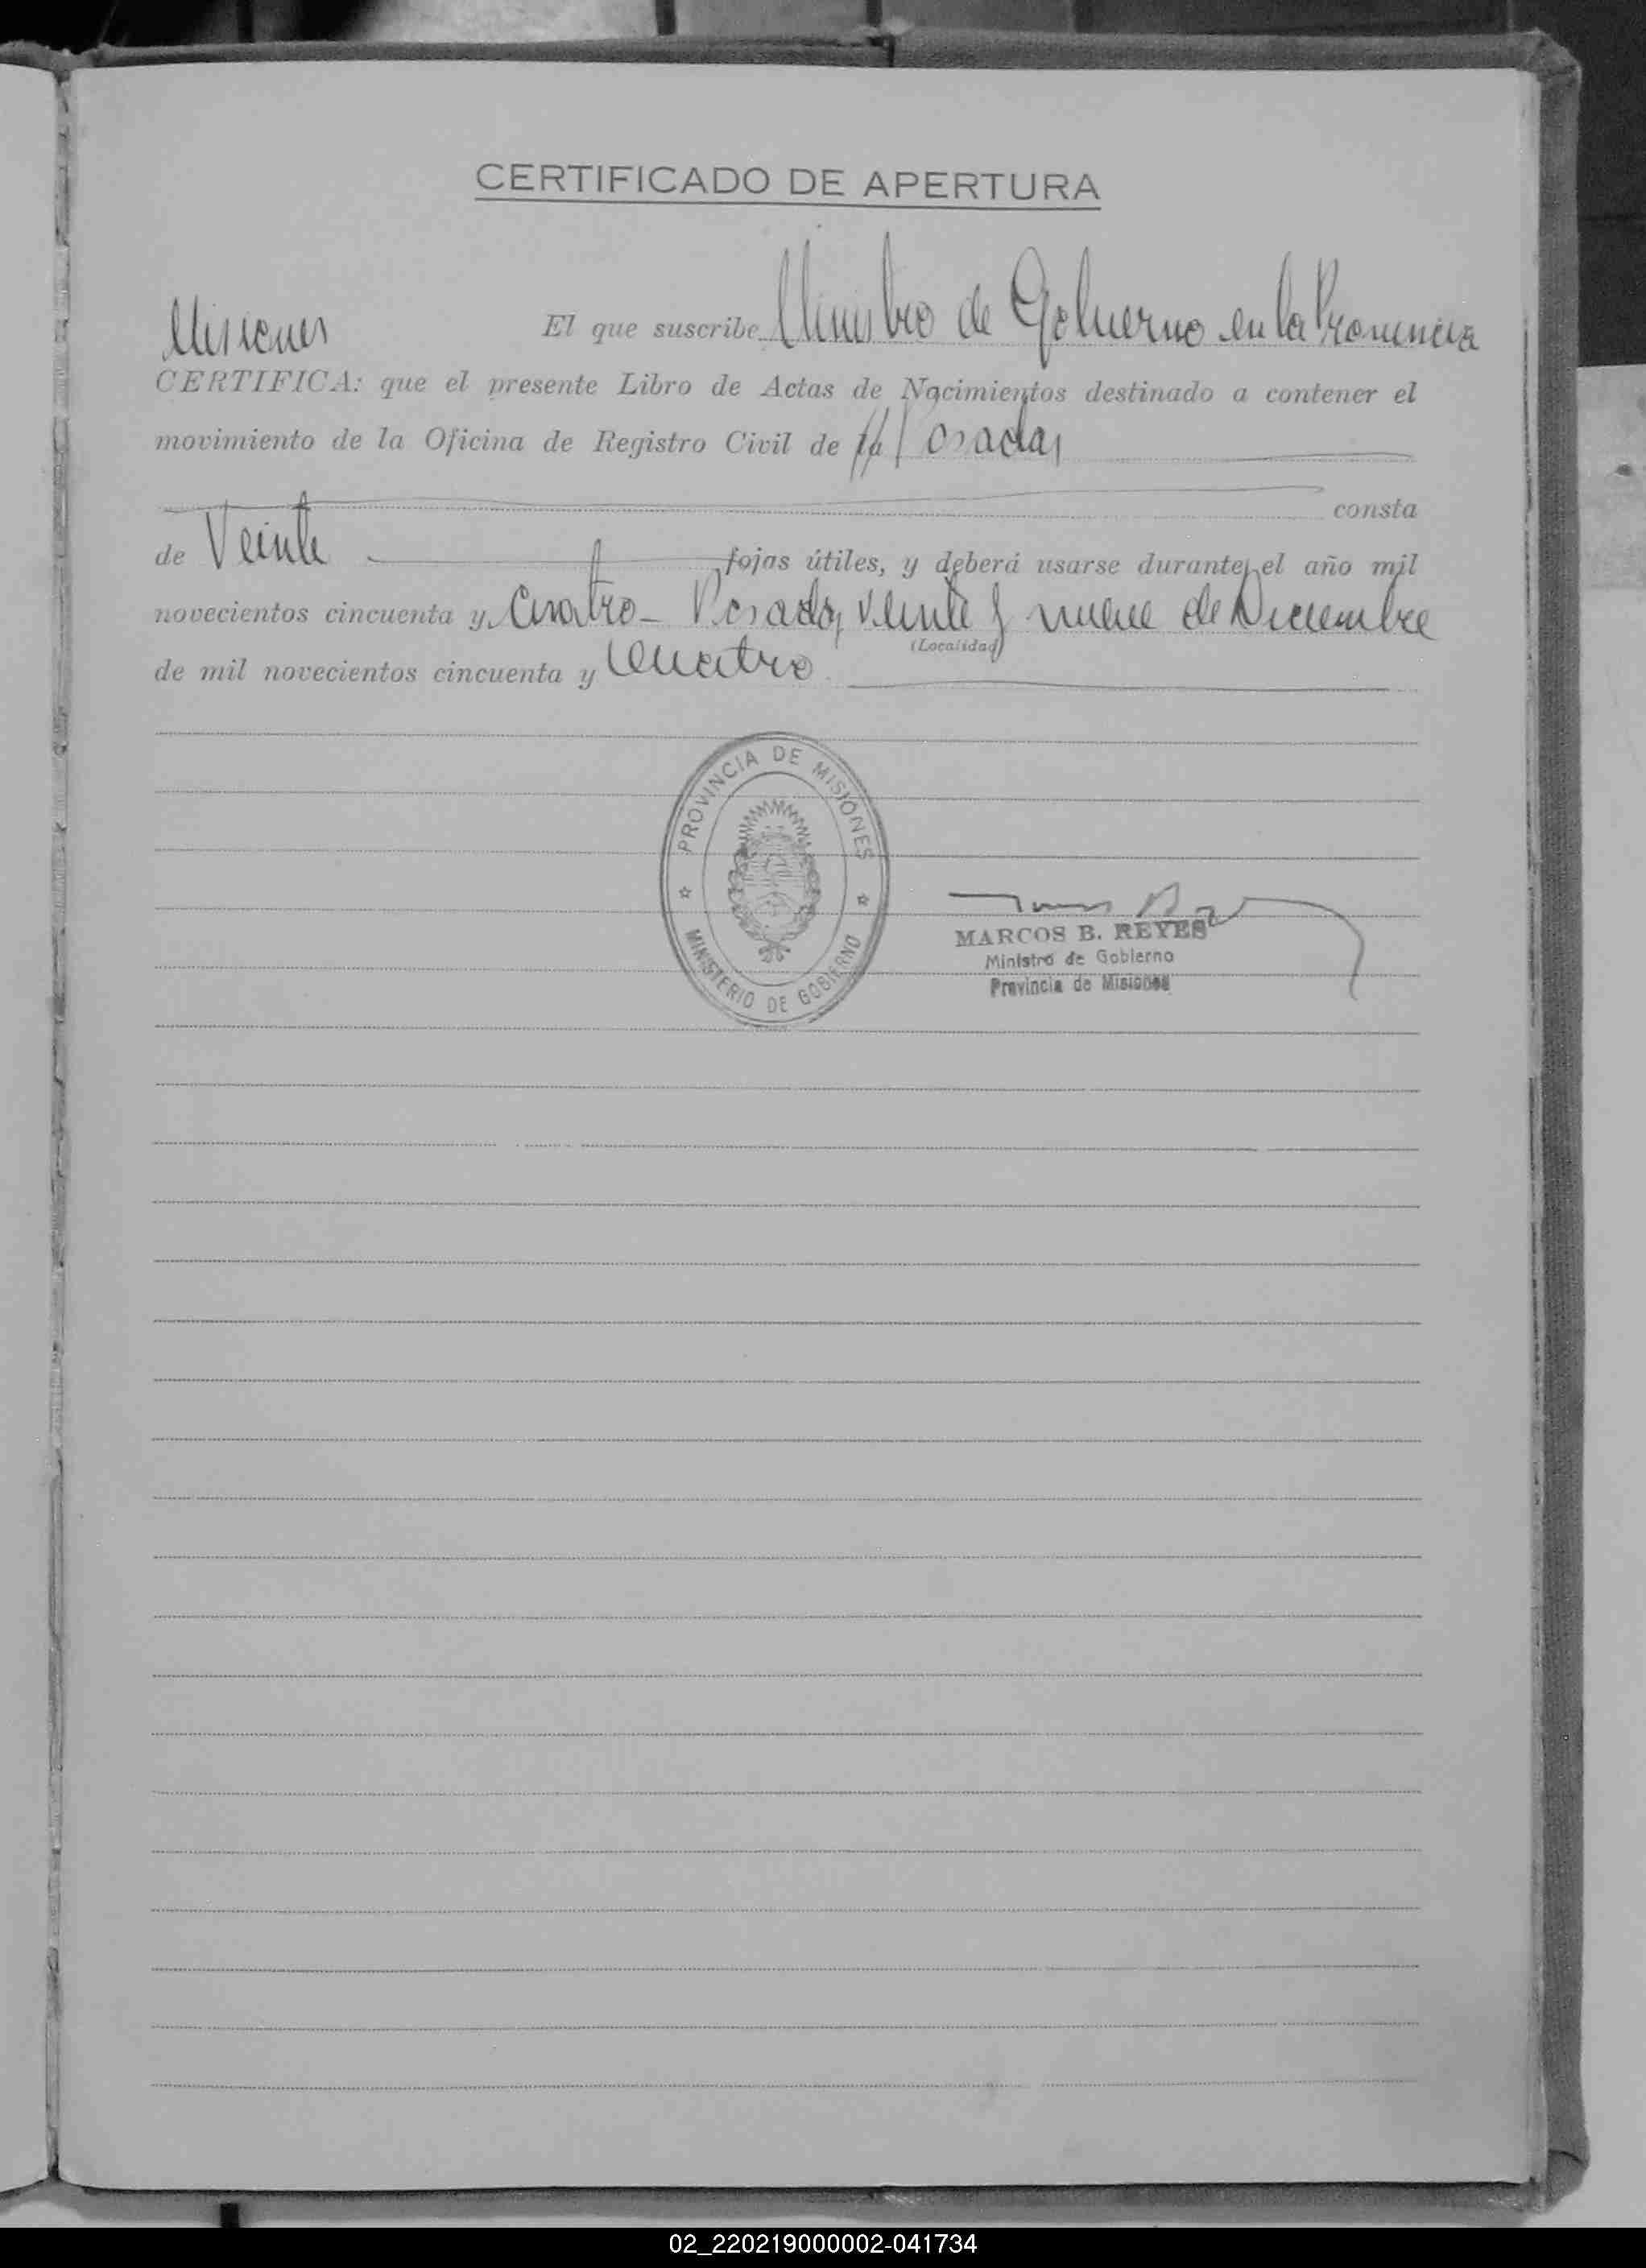 CERTIFICADO DE APERTURA
El que suscribe Ministro de Gobierno en la Provincia
Misiones
CERTIFICA: que el presente Libro de Actas de Nacimientos destinado a contener el
movimiento de la Oficina de Registro Civil de la Posadas
consta
de Veinte fojas útiles, y deberá usarse durante el año mil
novecientos cincuenta y Cuatro - Posadas, veinte y nueve de Diciembre
(Localidad)
de mil novecientos cincuenta y Cuatro
PROVINCIA DE MISIONES
MINISTERIO DE GOBIERNO
MARCOS B. REYES
Ministro de Gobierno
Provincia de Misiones
02_220219000002-041734